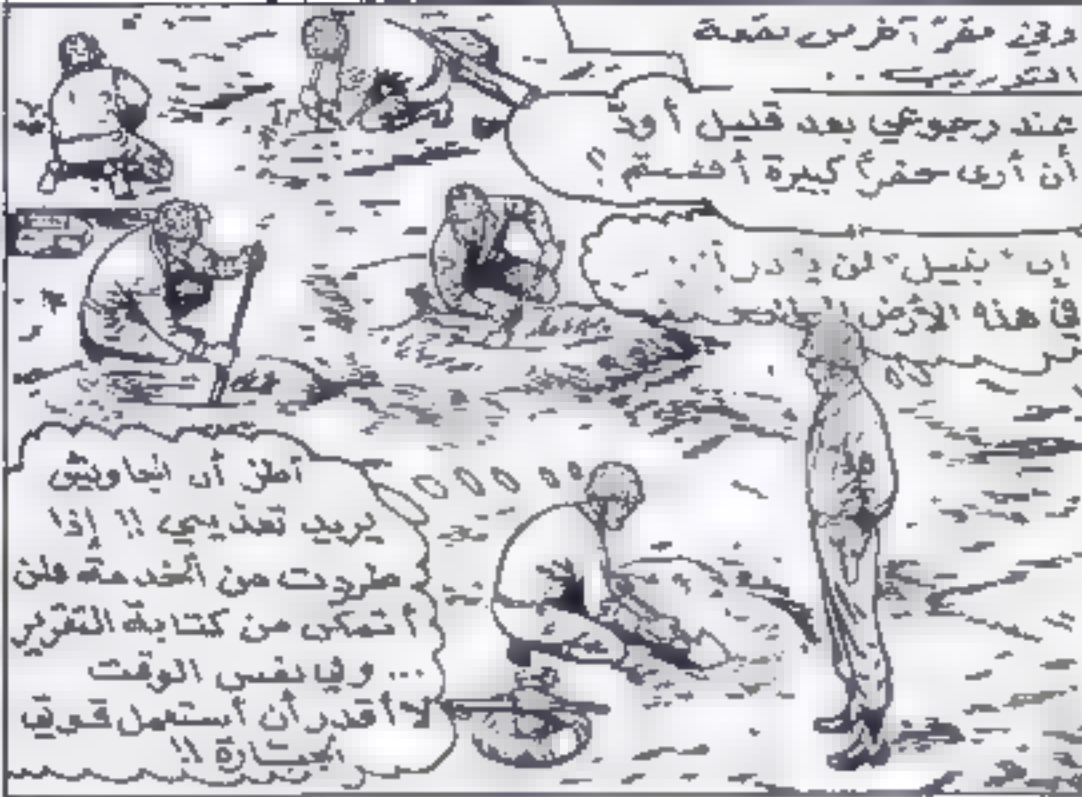 وفي مقرّ آخر من بقعة
التدريب...
عند رجوعي بعد قليل أودّ
أن أرى حفرًا كبيرة أفهمتم ؟
إن "نبيل" لن يـ
في هذه الأرض
أظن أن الجاويش
يريد تعذيبي !! إذا
طردت من الخدمة فلن
أتمكن من كتابة التقرير
... وفي نفس الوقت
لا أقدر أن أستعمل قوتي
الجبّارة !!